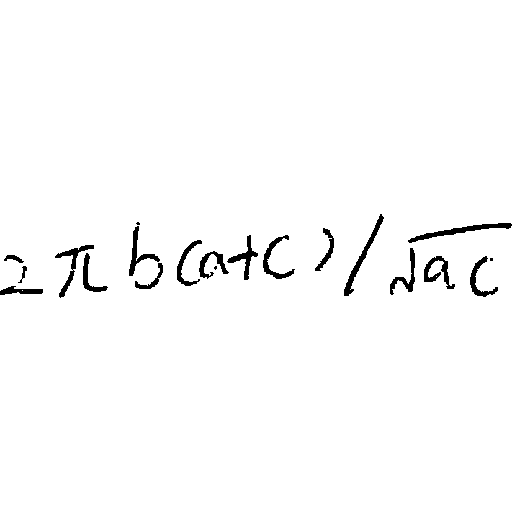 2πb(a+c)/√ac